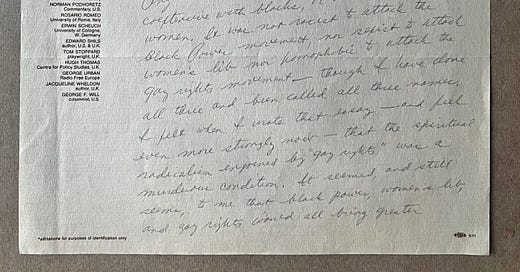 NORMAN PODHORETZ
Commentary, U.S.
ROSARIO ROMEO
University of Rome, Italy
ERWIN SCHEUCH
University of Cologne,
W. Germany
EDWARD SHILS
author, U.S. & U.K.
TOM STOPPARD
playwright, U.K.
HUGH THOMAS
Centre for Policy Studies, U.K.
GEORGE URBAN
Radio Free Europe
JACQUELINE WHELDON
author, U.K.
GEORGE F. WILL
columnist, U.S.
*affiliations for purposes of identification only
with blacks,
women. It was not racist to attack the
black Power movement, nor sexist to attack
women's lib nor homophobic to attack the
gay rights movement — though I have done
all three and been called all three names.
I felt when I wrote that essay — and feel
even more strongly now — that the spiritual
radicalism exposed by "gay rights" was a
murderous condition. It seemed, and still
seems, to me that black power, women's lib,
and gay rights would all bring greater